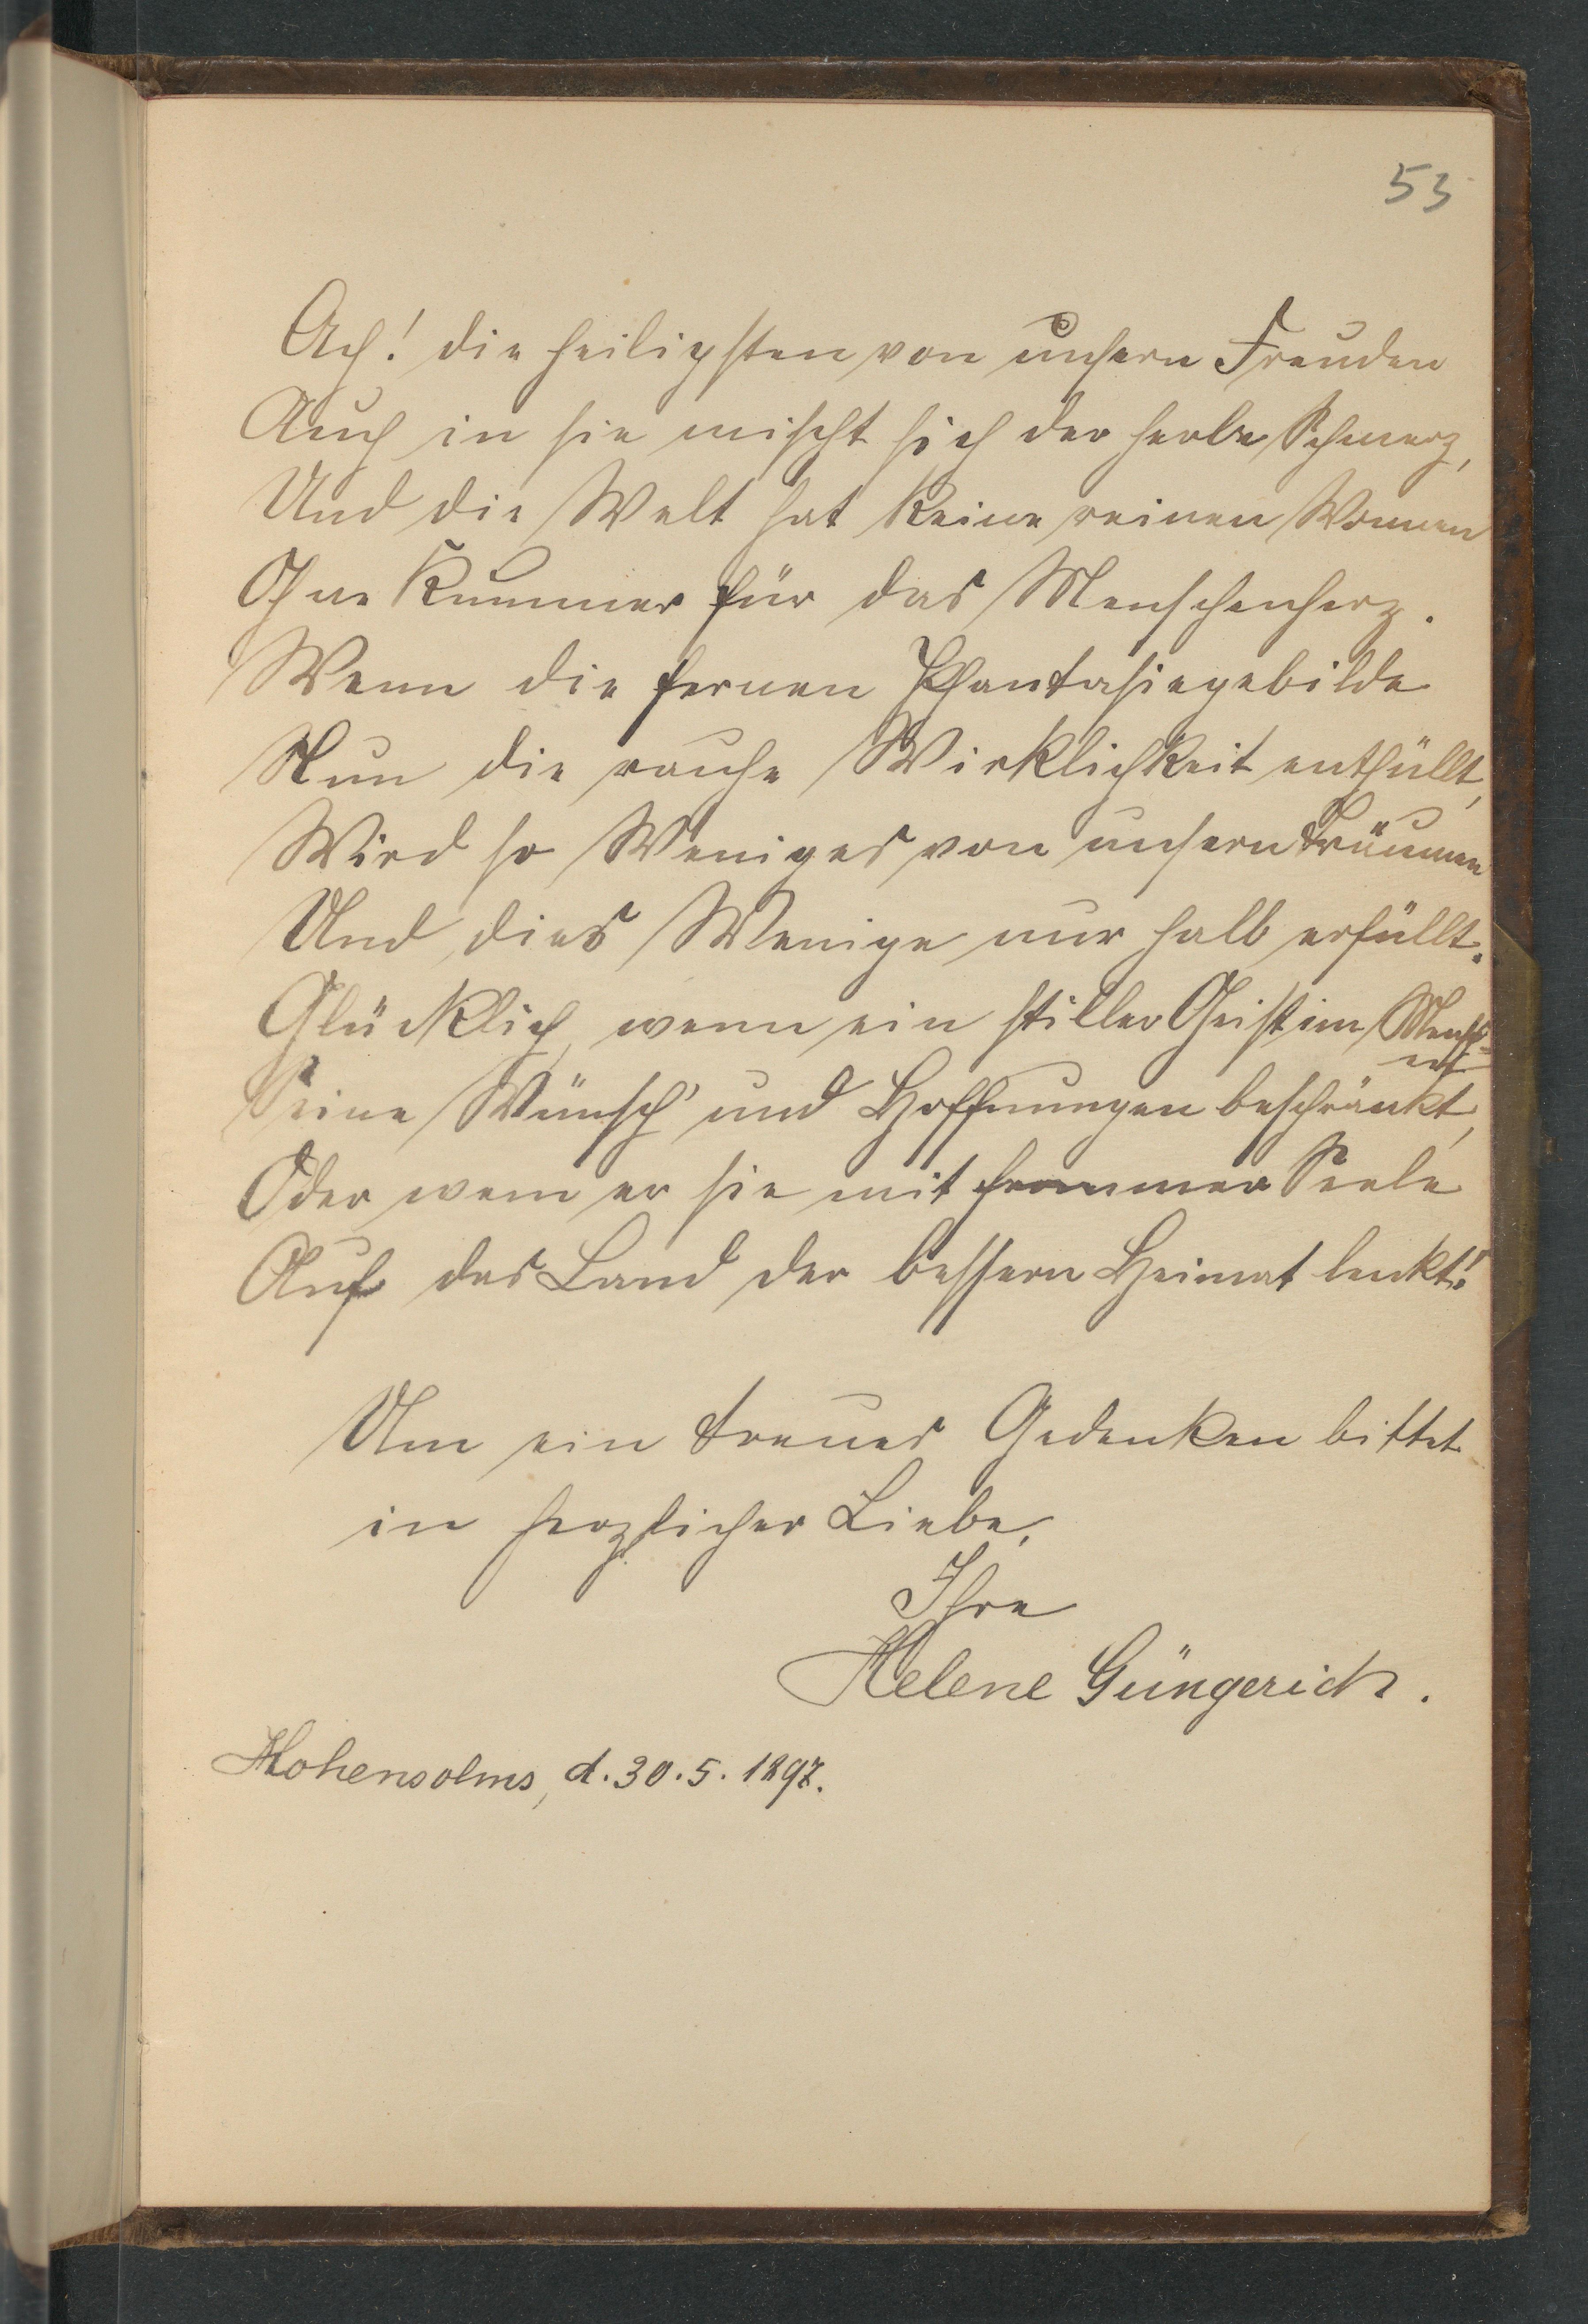 53
Ach! die heiligsten von unsern Freuden
Auch in sie mischt sich der herbe Schmerz,
Und die Welt hat keine reinen Wonnen
Ohne Kummer für das Menschenherz.
Wenn die fernen Phantasiegebilde
Nun die rauhe Wirklichkeit enthüllt,
Wird so Weniges von unsern Träumen
Und dies Wenige nur halb erfüllt.
Glücklich, wenn ein stiller Geist im Mensch-
en
Seine Wünsch' und Hoffnungen beschränkt,
Oder wenn er sie mit frommer Seele
Auf das Land der bessern Heimat lenkt!
Um ein treues Gedenken bittet
in herzlicher Liebe,
Ihre
Helene Güngerich.
Hohensolms, d. 30. 5. 1897.